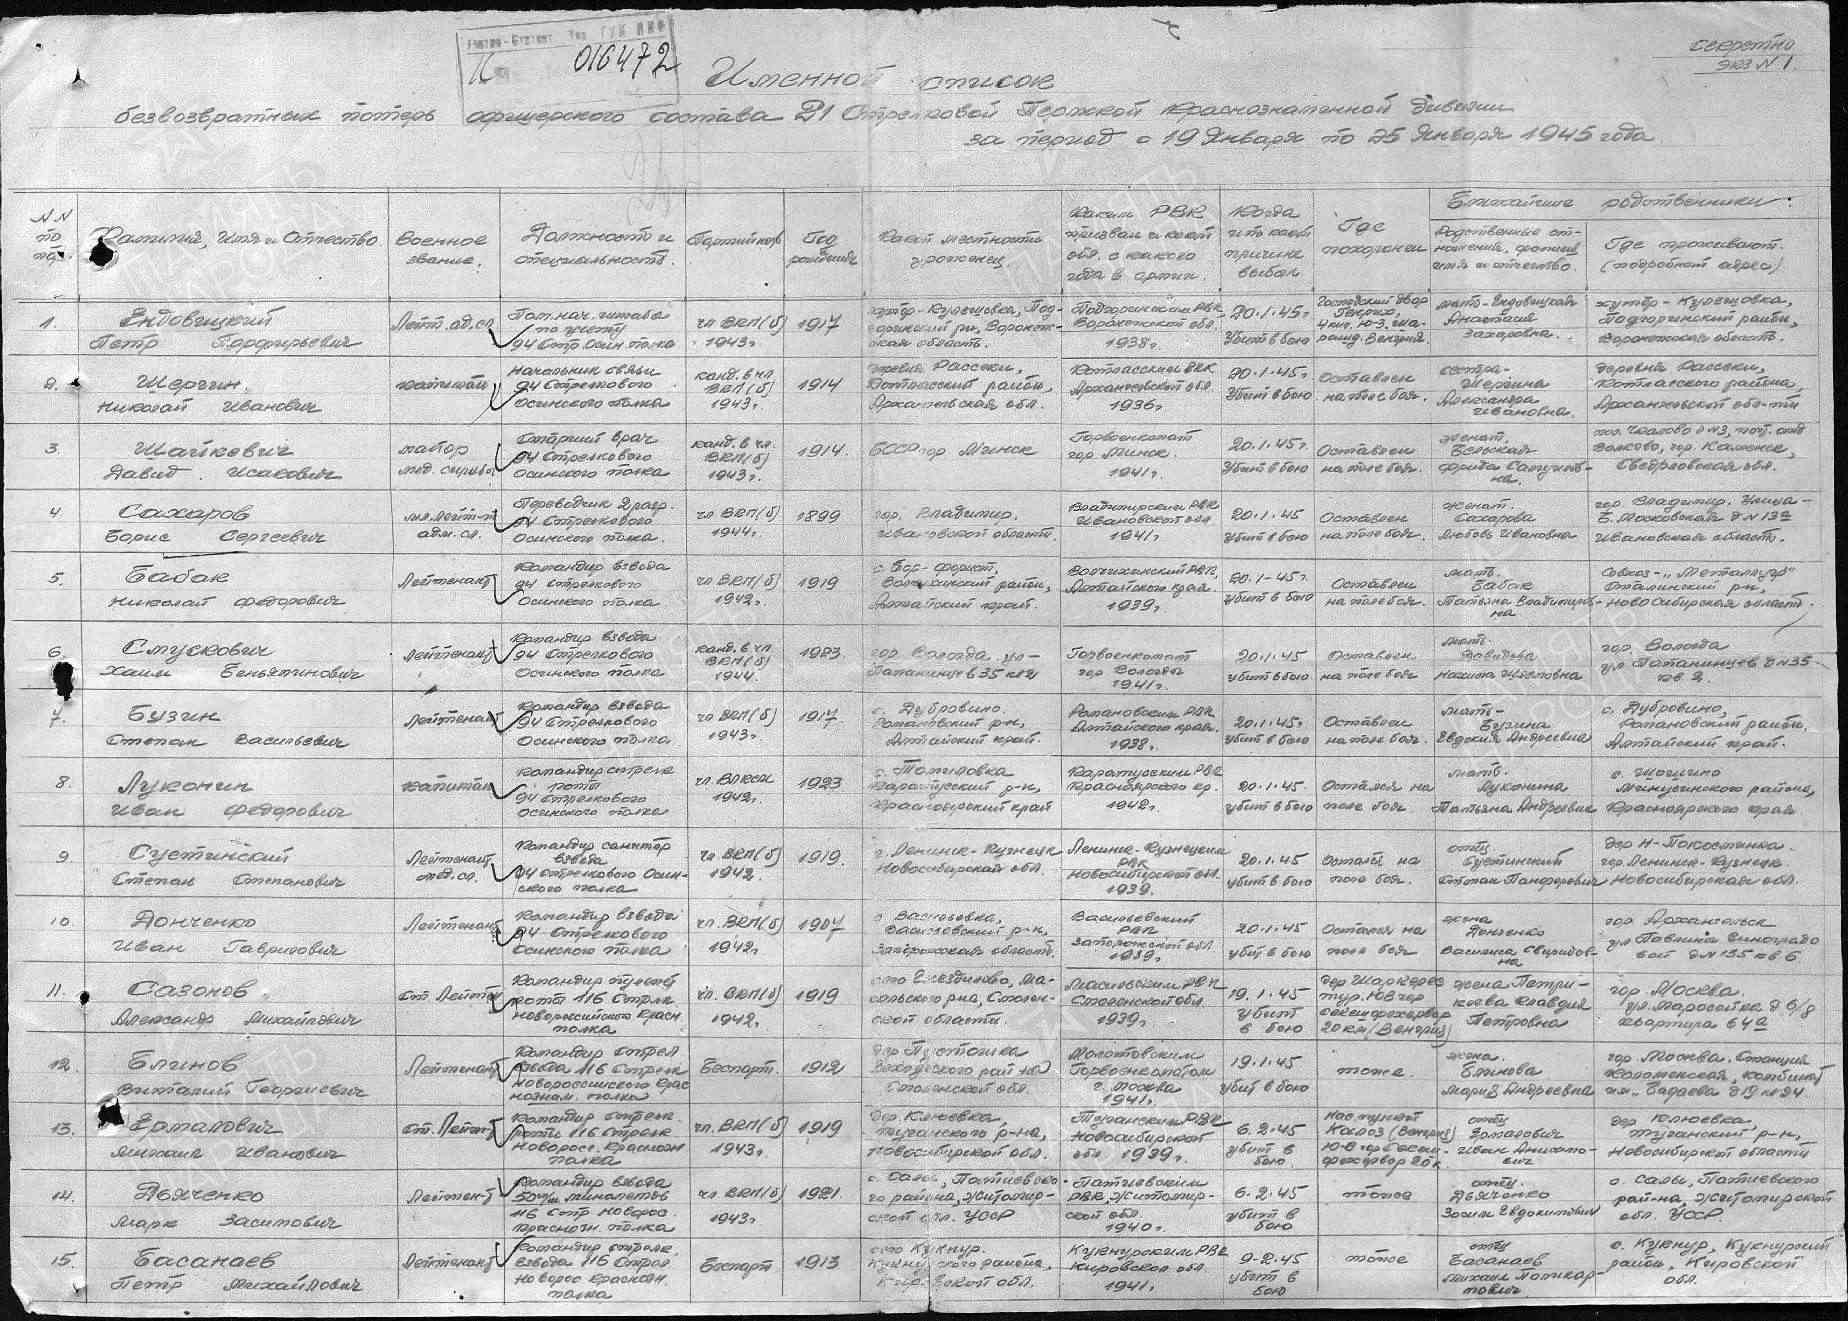 016472
секретно
экз N 1.
Именной список
безвозвратных потерь офицерского состава 21 Стрелковой Пермской Краснознаменной дивизии
за период с 19 Января по 25 Января 1945 года.
NN по пор. Фамилия, Имя и Отчество Военное звание. Должность и специальность. Партийность Год рождения Какой местности уроженец. Каким РВК призван и какой обл. с какого года в армии. Когда и по какой причине выбыл Где похоронен Ближайшие родственники:
Родственные отношения, фамилия имя и отчество. Где проживают. (подробный адрес)
1. Ендовицкий Петр Порфирьевич Лейт. ад. сл. Пом. нач. штаба по учету 94 Стр. Осин. полка чл ВКП(б) 1943г. 1917 хутор - Кулешовка, Подгоринский рн, Воронежская область. Подгоринским РВК Воронежской обл. 1938г. 20.1.45г. Убит в бою Господский двор Генрих, 4 км. Ю-З. Венгрия. мать - Ендовицкая Анастасия Захаровна. хутор - Кулешовка, Подгоринский район, Воронежская область.
2. Шергин Николай Иванович капитан Начальник связи 94 Стрелкового Осинского полка канд. в чл ВКП(б) 1943г. 1914 деревня Рассохи, Котласский район, Архангельская обл. Котласским РВК Архангельской обл. 1936г. 20.1.45г. Убит в бою Оставлен на поле боя. сестра - Шергина Александра Ивановна. деревня Рассохи, Котласского района, Архангельской обл-ти
3. Шайкевич Давид Исакович майор мед. службы Старший врач 94 Стрелкового Осинского полка канд. в чл. ВКП(б) 1943г. 1914. БССР гор Минск Горвоенкомат гор Минск. 1941г. 20.1.45г. Убит в бою Оставлен на поле боя. жена. Бельская Фрида гор. Каменск, Свердловская обл.
4 Сахаров Борис Сергеевич мл. лейт-т адм. сл. Переводчик 2 разр. 94 Стрелкового Осинского полка. чл ВКП(б) 1944г. 1899 гор. Владимир. Ивановской области. Владимирским РВК Ивановской обл 1941г 20.1.45 Убит в бою Оставлен на поле боя. жена. Сахарова Любовь Ивановна гор. Владимир. Улица - Б. Московская д N 13а Ивановская область.
5. Бабак Николай Федорович Лейтенант Командир взвода 94 Стрелкового Осинского полка чл ВКП(б) 1942г. 1919 с. Бор-форпост, Волчихинский район, Алтайский край. Волчихинский РВК, Алтайского края. 1939г. 20.1-45г. Убит в бою Оставлен на поле боя. мать. Бабак Татьяна Владимировна совхоз - "Металлург" Сталинский рн, Новосибирская область.
6. Смускович Хаим Беньяминович Лейтенант Командир взвода 94 Стрелкового Осинского полка канд. в чл ВКП(б) 1944. 1923. гор. Вологда ул - 35 кв 2 Горвоенкомат гор Вологды 1941г. 20.1.45 убит в бою Оставлен на поле боя мать. Давидова гор. Вологда д N 35 - кв 2.
7. Бузин Степан Васильевич Лейтенант Командир взвода 94 Стрелкового Осинского полка чл ВКП(б) 1943г. 1917. с. Дубровино. Романовский р-н, Алтайский край. Романовским РВК Алтайского края. 1938г. 20.1.45г. убит в бою Оставлен на поле боя. мать - Бузина Евдокия Андреевна с. Дубровино, Романовский район, Алтайский край.
8. Луконин Иван Федорович капитан Командир стрелк роты 94 Стрелкового Осинского полка чл. ВЛКСМ 1942г. 1923 Каратузский р-н, Красноярский край Каратузским РВК Красноярского кр. 1942г. 20.1.45 убит в бою Остался на поле боя. мать. Луконина Татьяна Андреевна с. Шошино Минусинского района, Красноярского края
9. Сустинский Степан Степанович Лейтенант мед. сл. Командир санитар взвода 94 Стрелкового Осинского полка чл ВКП(б) 1942. 1919. г. Ленинск-Кузнецк Новосибирской обл. Ленинск-Кузнецким РВК Новосибирской обл. 1939. 20.1.45 убит в бою остался на поле боя. отец Сустинский Степан гор. Ленинск-Кузнецк. Новосибирская обл.
10. Донченко Иван Гаврилович Лейтенант Командир взвода 94 Стрелкового Осинского полка чл. ВКП(б) 1942г. 1907 с Васильевка, Васильевский р-н, Запорожская область. Васильевский РВК Запорожской обл 1939г. 20.1.45 убит в бою Остался на поле боя жена Донченко Василиса Свиридовна гор Архангельск ул Павлина Виноградова д N 135 кв 6
11. Сазонов Александр Михайлович ст. Лейт-т Командир пулемет роты 116 Стрелк. Новороссийского Красн. полка чл. ВКП(б) 1942г. 1919 Смоленской области. Смоленской обл. 1939г. 19.1.45 убит в бою 20 км (Венгрия) жена Клавдия Петровна гор. Москва. ул. Маросейка д 6/8 квартира 64а
12. Блинов Виталий Георгиевич Лейтенант Командир стрел взвода 116 Стрелк Новороссийского Краснознам. полка Беспарт. 1912 дер Пустошка Смоленской обл. Молотовским Горвоенкоматом г. Москва 1941г. 19.1.45 убит в бою тоже. жена. Блинова Мария Андреевна гор. Москва. Станция Коломенская, комбинат им. Бадаева
13. Ермолович Михаил Иванович ст. Лейт-т Командир стрелк. роты 116 Стрелк. Новорос. Краснозн полка чл. ВКП(б) 1943г. 1919 дер. Клюевка, Туганского р-на, Новосибирской обл. Туганским РВК Новосибирской обл. 1939г. 6.2.45 убит в бою Нас пункт Калоз (Венгрия) отец Ермолович Иван дер Клюевка, Туганский р-н, Новосибирской области
14. Дьяченко Марк Засимович Лейтен-т Командир взвода 50 м/м минометов 116 Стр Новорос. Краснозн. полка чл. ВКП(б) 1943г. 1921. Житомирской обл. УССР РВК Житомирской обл. 1940г. 6.2.45 убит в бою тоже отец. Дьяченко Засим Евдокимович Житомирской обл. УССР.
15. Басанаев Петр Михайлович Лейтенант Командир стрелк. взвода 116 Стрел. Новорос Краснозн. полка Беспарт 1913 село Кукнур. Кукнурского района, Кировской обл. Кукнурским РВК Кировской обл. 1941г. 9-2.45 убит в бою тоже отец Басанаев Михаил Поликарпович. с. Кукнур, Кукнурский район, Кировской обл.